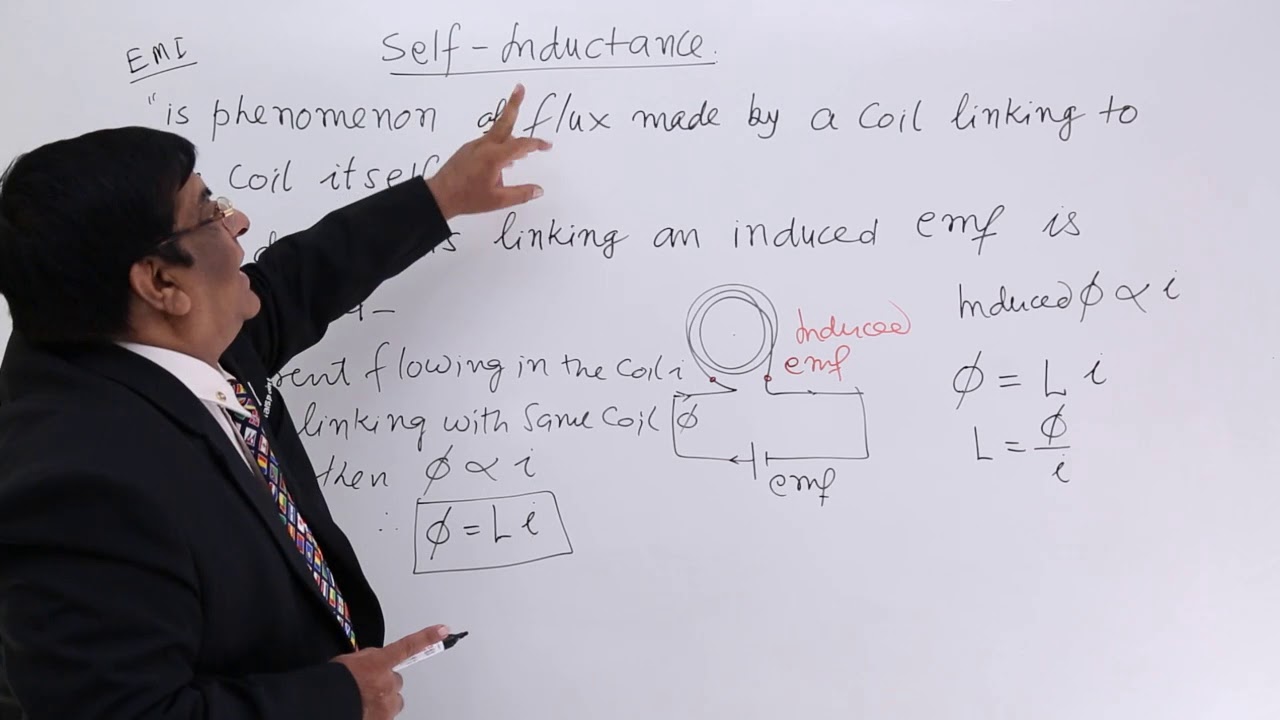 EMI
Self-Inductance.
"is phenomenon of flux made by a coil linking to
coil itself
linking an induced emf is
flowing in the coil i
linking with same coil ϕ
then ϕ ∝ i
∴ ϕ = L i
Induced
emf
emf
Induced ϕ ∝ i
ϕ = L i
L = ϕ/i